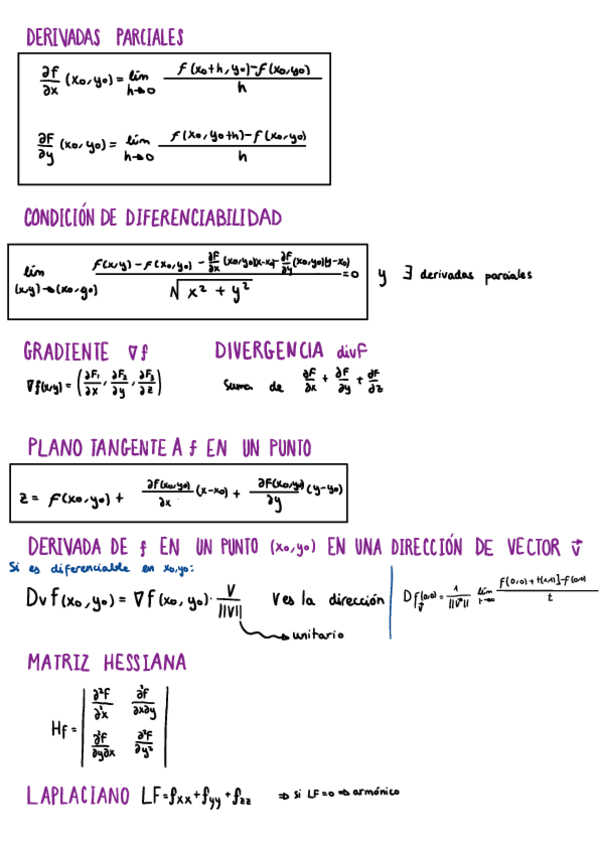 DERIVADAS PARCIALES
∂f/∂x (x₀,y₀) = lím h→0 f(x₀+h, y₀)-f(x₀,y₀) / h
∂F/∂y (x₀,y₀) = lím h→0 f(x₀,y₀+h)-f(x₀,y₀) / h
CONDICIÓN DE DIFERENCIABILIDAD
lím (x,y)→(x₀,y₀) f(x,y) - f(x₀,y₀) - ∂F/∂x (x₀,y₀)(x-x₀) - ∂F/∂y (x₀,y₀)(y-x₀) / √x² + y² = 0 y ∃ derivadas parciales
GRADIENTE ∇f DIVERGENCIA divF
∇f(x,y) = (∂F₁/∂x, ∂F₂/∂y, ∂F₃/∂z) Suma de ∂F/∂x + ∂F/∂y + ∂F/∂z
PLANO TANGENTE A f EN UN PUNTO
z = f(x₀,y₀) + ∂f(x₀,y₀)/∂x (x-x₀) + ∂F(x₀,y₀)/∂y (y-y₀)
DERIVADA DE f EN UN PUNTO (x₀,y₀) EN UNA DIRECCIÓN DE VECTOR v⃗
Si es diferenciable en x₀,y₀:
Dvf(x₀,y₀) = ∇f(x₀,y₀)· V/||V|| V es la dirección
unitario
D_v⃗ f(0,0) = 1/||V⃗|| lím
MATRIZ HESSIANA
Hf = | ∂²F/∂²x ∂²f/∂x∂y |
| ∂²f/∂y∂x ∂²F/∂y² |
LAPLACIANO LF=fxx+fyy+fzz ⇒ si LF=0 ⇒ armónico